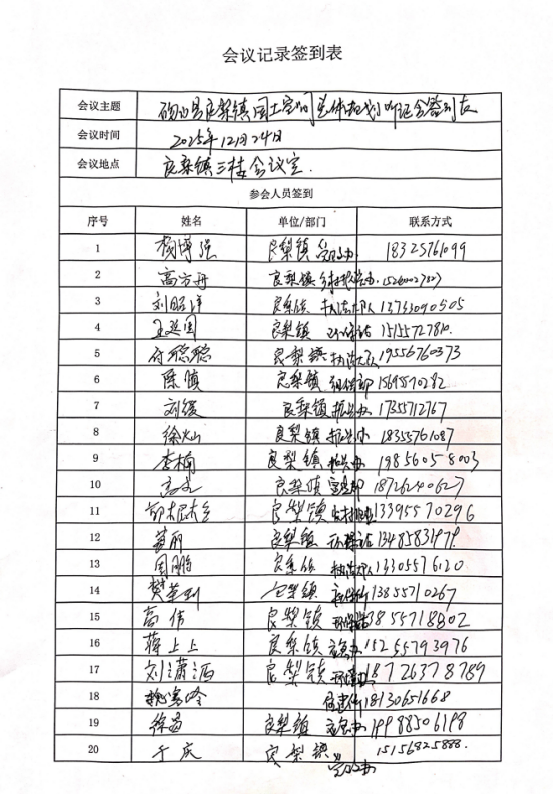 会议记录签到表
会议主题 砀山县良梨镇国土空间总体规划听证会签到表
会议时间 2025年12月24日
会议地点 良梨镇三楼会议室.
参会人员签到
序号 姓名 单位/部门 联系方式
1 杨博强 良梨镇 18325761099
2 高方丹 良梨镇
3 刘昭洋 良梨镇 执法大队 13733090505
4 王廷国 良梨镇 15155727810.
5 付聪聪 良梨镇 执法大队 19556760373
6 陈慎 良梨镇 组织部 15695570282
7 刘缓 良梨镇 扶贫办 17355712767
8 徐灿 良梨镇 18355761087
9 李楠 良梨镇 19856058003
10 良梨镇 18726240627
11 良梨镇 13395570296
12 良梨镇
13 周鹏 良梨镇 执法大队 13305576120
14 樊革到 良梨镇 13855710267
15 高伟 良梨镇 13855718802
16 蒋上上 良梨镇 15255793976
17 刘潇洒 良梨镇 18726378789
18 18130651668
19 徐昌 良梨镇 19988506198
20 于庆 良梨镇 15156825888.